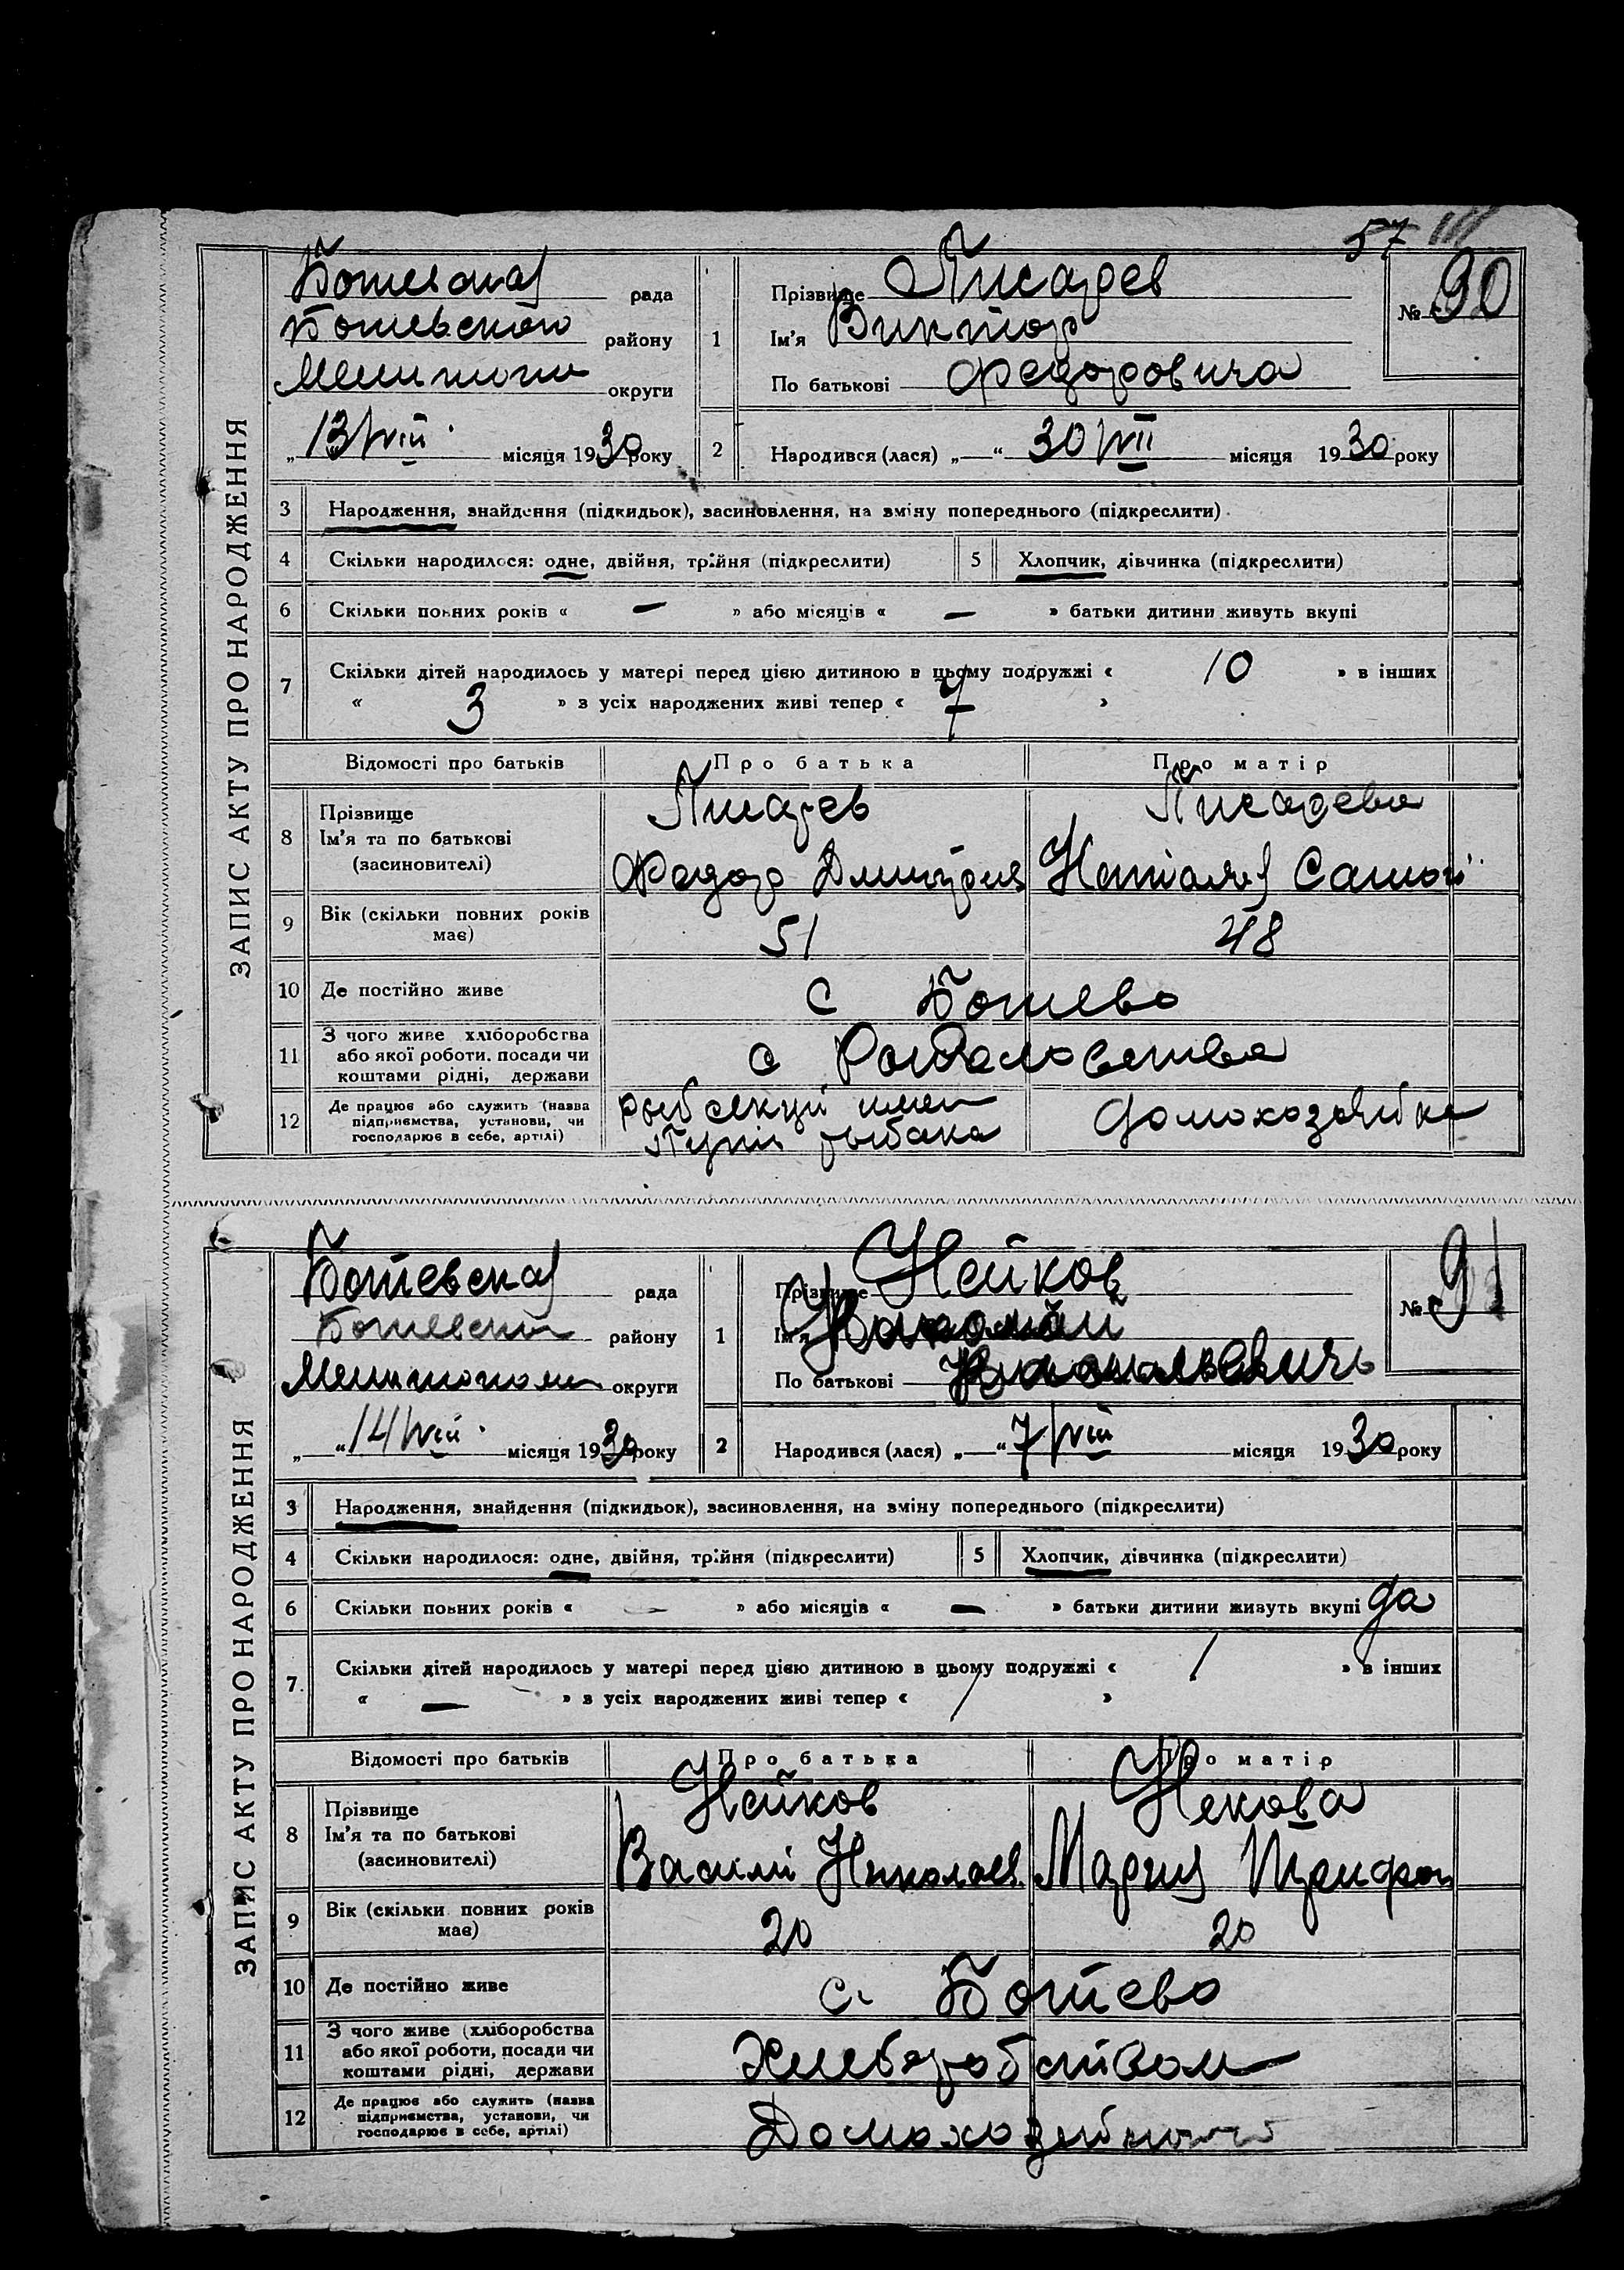 57
Ботевская рада
Ботевского району
Мелитополь округи
„ 13/VIII місяця 1930 року
1
Прізвище Писарев
Ім'я Виктор
По батькові Федоровича
№ 90
2 Народився (лася) „ — “ 30/VII місяця 1930 року
ЗАПИС АКТУ ПРО НАРОДЖЕННЯ
3 Народження, знайдення (підкидьок), засиновлення, на зміну попереднього (підкреслити)
4 Скільки народилося: одне, двійня, трійня (підкреслити)
5 Хлопчик, дівчинка (підкреслити)
6 Скільки повних років « — » або місяців « — » батьки дитини живуть вкупі
7 Скільки дітей народилось у матері перед цією дитиною в цьому подружжі « 10 » в інших
« 3 » з усіх народжених живі тепер « 7 »
Відомості про батьків Про батька Про матір
8 Прізвище Писарев Писарева
Ім'я та по батькові
(засиновителі) Федор Дмитрия Наталия
9 Вік (скільки повних років 51 48
має)
10 Де постійно живе с Ботево
11 З чого живе хліборобства
або якої роботи. посади чи
коштами рідні, держави с Рыболовства
12 Де працює або служить (назва
підприємства, установи, чи
господарює в себе, артілі) рыбсекции имен
рыбака домохозяйка
Ботевская рада
Ботевский району
Мелитополь округи
„ — “ 14/VIII місяця 1930 року
1
Прізвище Нейков
Ім'я Николай
По батькові Васильевичь
№ 91
2 Народився (лася) „ — “ 7/VIII місяця 1930 року
ЗАПИС АКТУ ПРО НАРОДЖЕННЯ
3 Народження, знайдення (підкидьок), засиновлення, на зміну попереднього (підкреслити)
4 Скільки народилося: одне, двійня, трійня (підкреслити)
5 Хлопчик, дівчинка (підкреслити)
6 Скільки повних років « — » або місяців « — » батьки дитини живуть вкупі да
7 Скільки дітей народилось у матері перед цією дитиною в цьому подружжі « 1 » в інших
« — » з усіх народжених живі тепер « 1 »
Відомості про батьків Про батька Про матір
8 Прізвище Нейков Некова
Ім'я та по батькові
(засиновителі) Василий Николаев Мария Трифон
9 Вік (скільки повних років 20 20
має)
10 Де постійно живе с. Ботево
11 З чого живе (хліборобства
або якої роботи, посади чи
коштами рідні, держави Хлеборобством
12 Де працює або служить (назва
підприємства, установи, чи
господарює в себе, артілі)